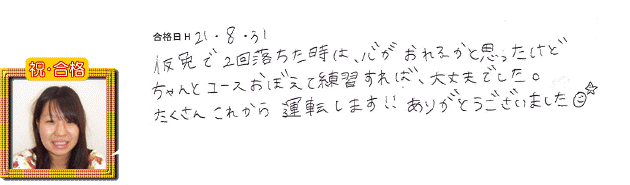 合格日H 21・8・31
仮免で2回落ちた時は、心がおれるかと思ったけど
ちゃんとコースおぼえて練習すれば、大丈夫でした。
たくさんこれから運転します!! ありがとうございました
祝・合格